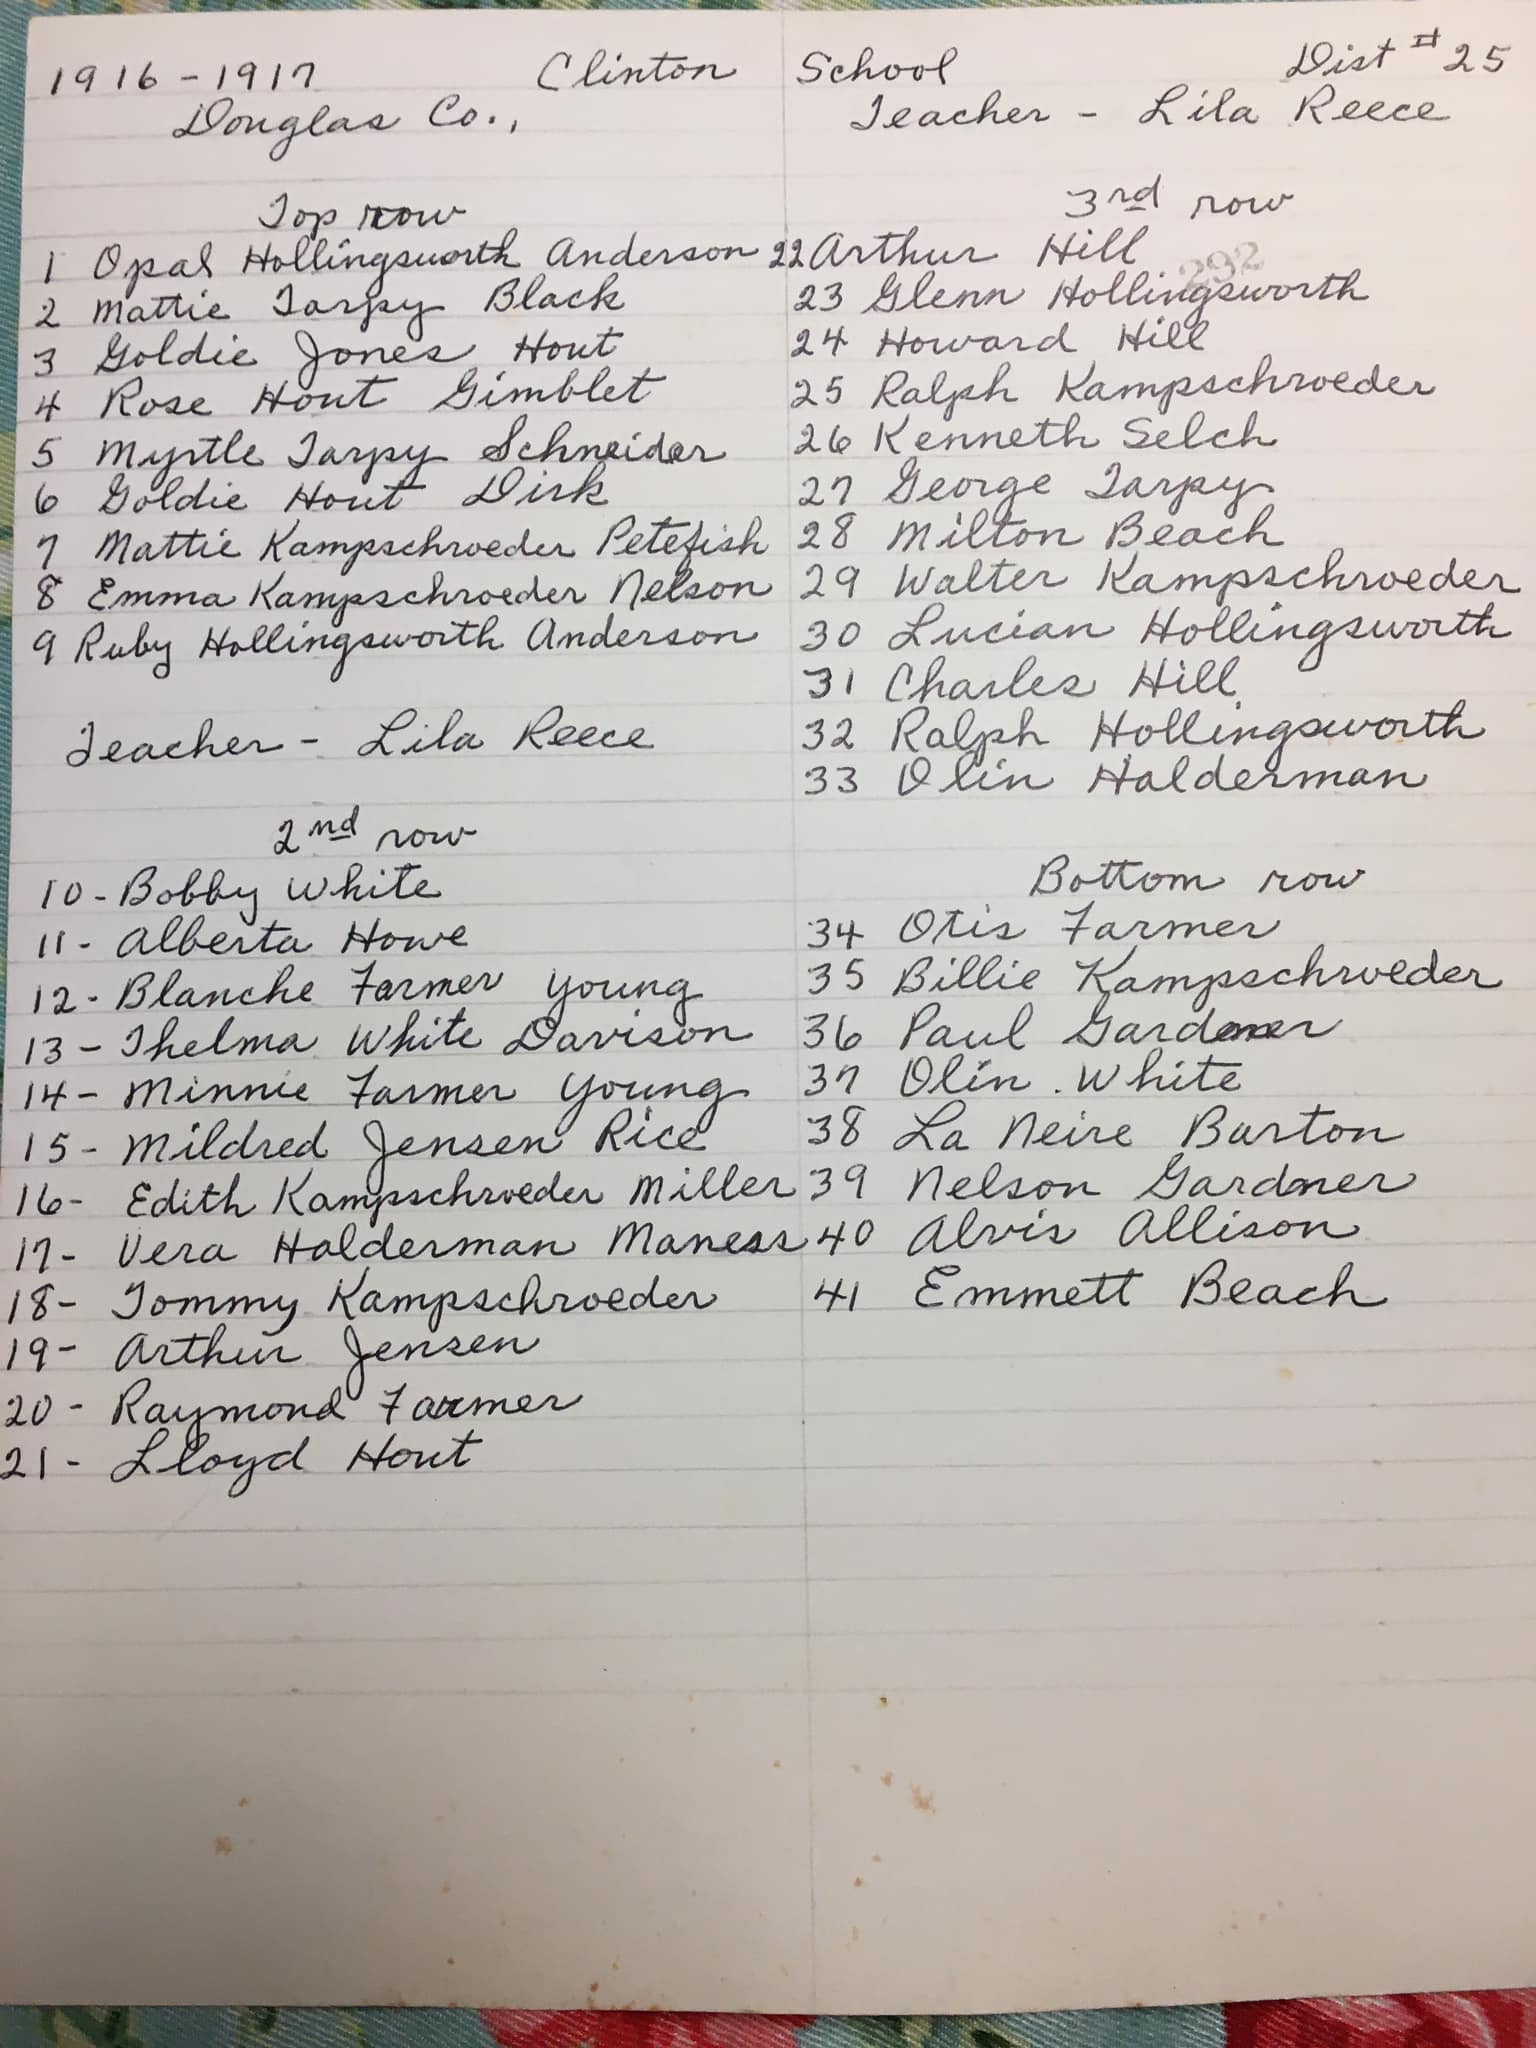 1916-1917 Clinton School Dist #25
Douglas Co., Teacher - Lila Reece
Top row
1 Opal Hollingsworth Anderson
2 Mattie Tarpy Black
3 Goldie Jones Hout
4 Rose Hout Gimblet
5 Myrtle Tarpy Schneider
6 Goldie Hout Disk
7 Mattie Kampschroeder Petefish
8 Emma Kampschroeder Nelson
9 Ruby Hollingsworth Anderson
Teacher - Lila Reece
2nd row
10- Bobby White
11- Alberta Howe
12- Blanche Farmer Young
13- Thelma White Davison
14- Minnie Farmer Young
15- Mildred Jensen Rice
16- Edith Kampschroeder Miller
17- Vera Halderman Maness
18- Tommy Kampschroeder
19- Arthur Jensen
20- Raymond Farmer
21- Lloyd Hout
3rd row
22 Arthur Hill
292
23 Glenn Hollingsworth
24 Howard Hill
25 Ralph Kampschroeder
26 Kenneth Selch
27 George Tarpy
28 Milton Beach
29 Walter Kampschroeder
30 Lucian Hollingsworth
31 Charles Hill
32 Ralph Hollingsworth
33 Olin Halderman
Bottom row
34 Otis Farmer
35 Billie Kampschroeder
36 Paul Gardner
37 Olin White
38 La Neire Burton
39 Nelson Gardner
40 Alvis Allison
41 Emmett Beach